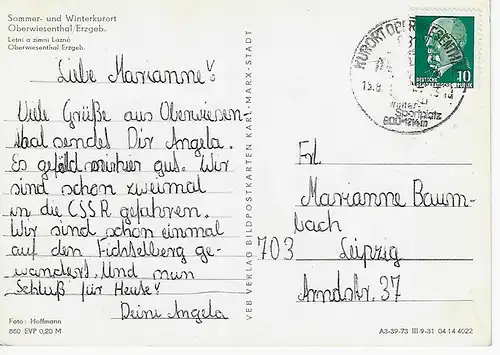 Sommer- und Winterkurort
Oberwiesenthal/Erzgeb.
Letni a zimni Lázně
Oberwiesenthal/Erzgeb.
Liebe Marianne!
Viele Grüße aus Oberwiesen-
thal sendet Dir Angela.
Es gefällt mir hier gut. Wir
sind schon zweimal
in die CSSR gefahren.
Wir sind schon einmal
auf den Fichtelberg ge-
wandert. Und nun
Schluß für Heute!
Deine Angela
Foto: Hoffmann
860 EVP 0,20 M
VEB VERLAG BILDPOSTKARTEN KARL-MARX-STADT
KURORT OBERWIESENTHAL
Winter-
Sportplatz
DEUTSCHE
DEMOKRATISCHE REPUBLIK
10
Frl.
Marianne Baum-
bach
703 Leipzig
Arndtstr. 37
A3-39-73 III-9-31 04 14 4022